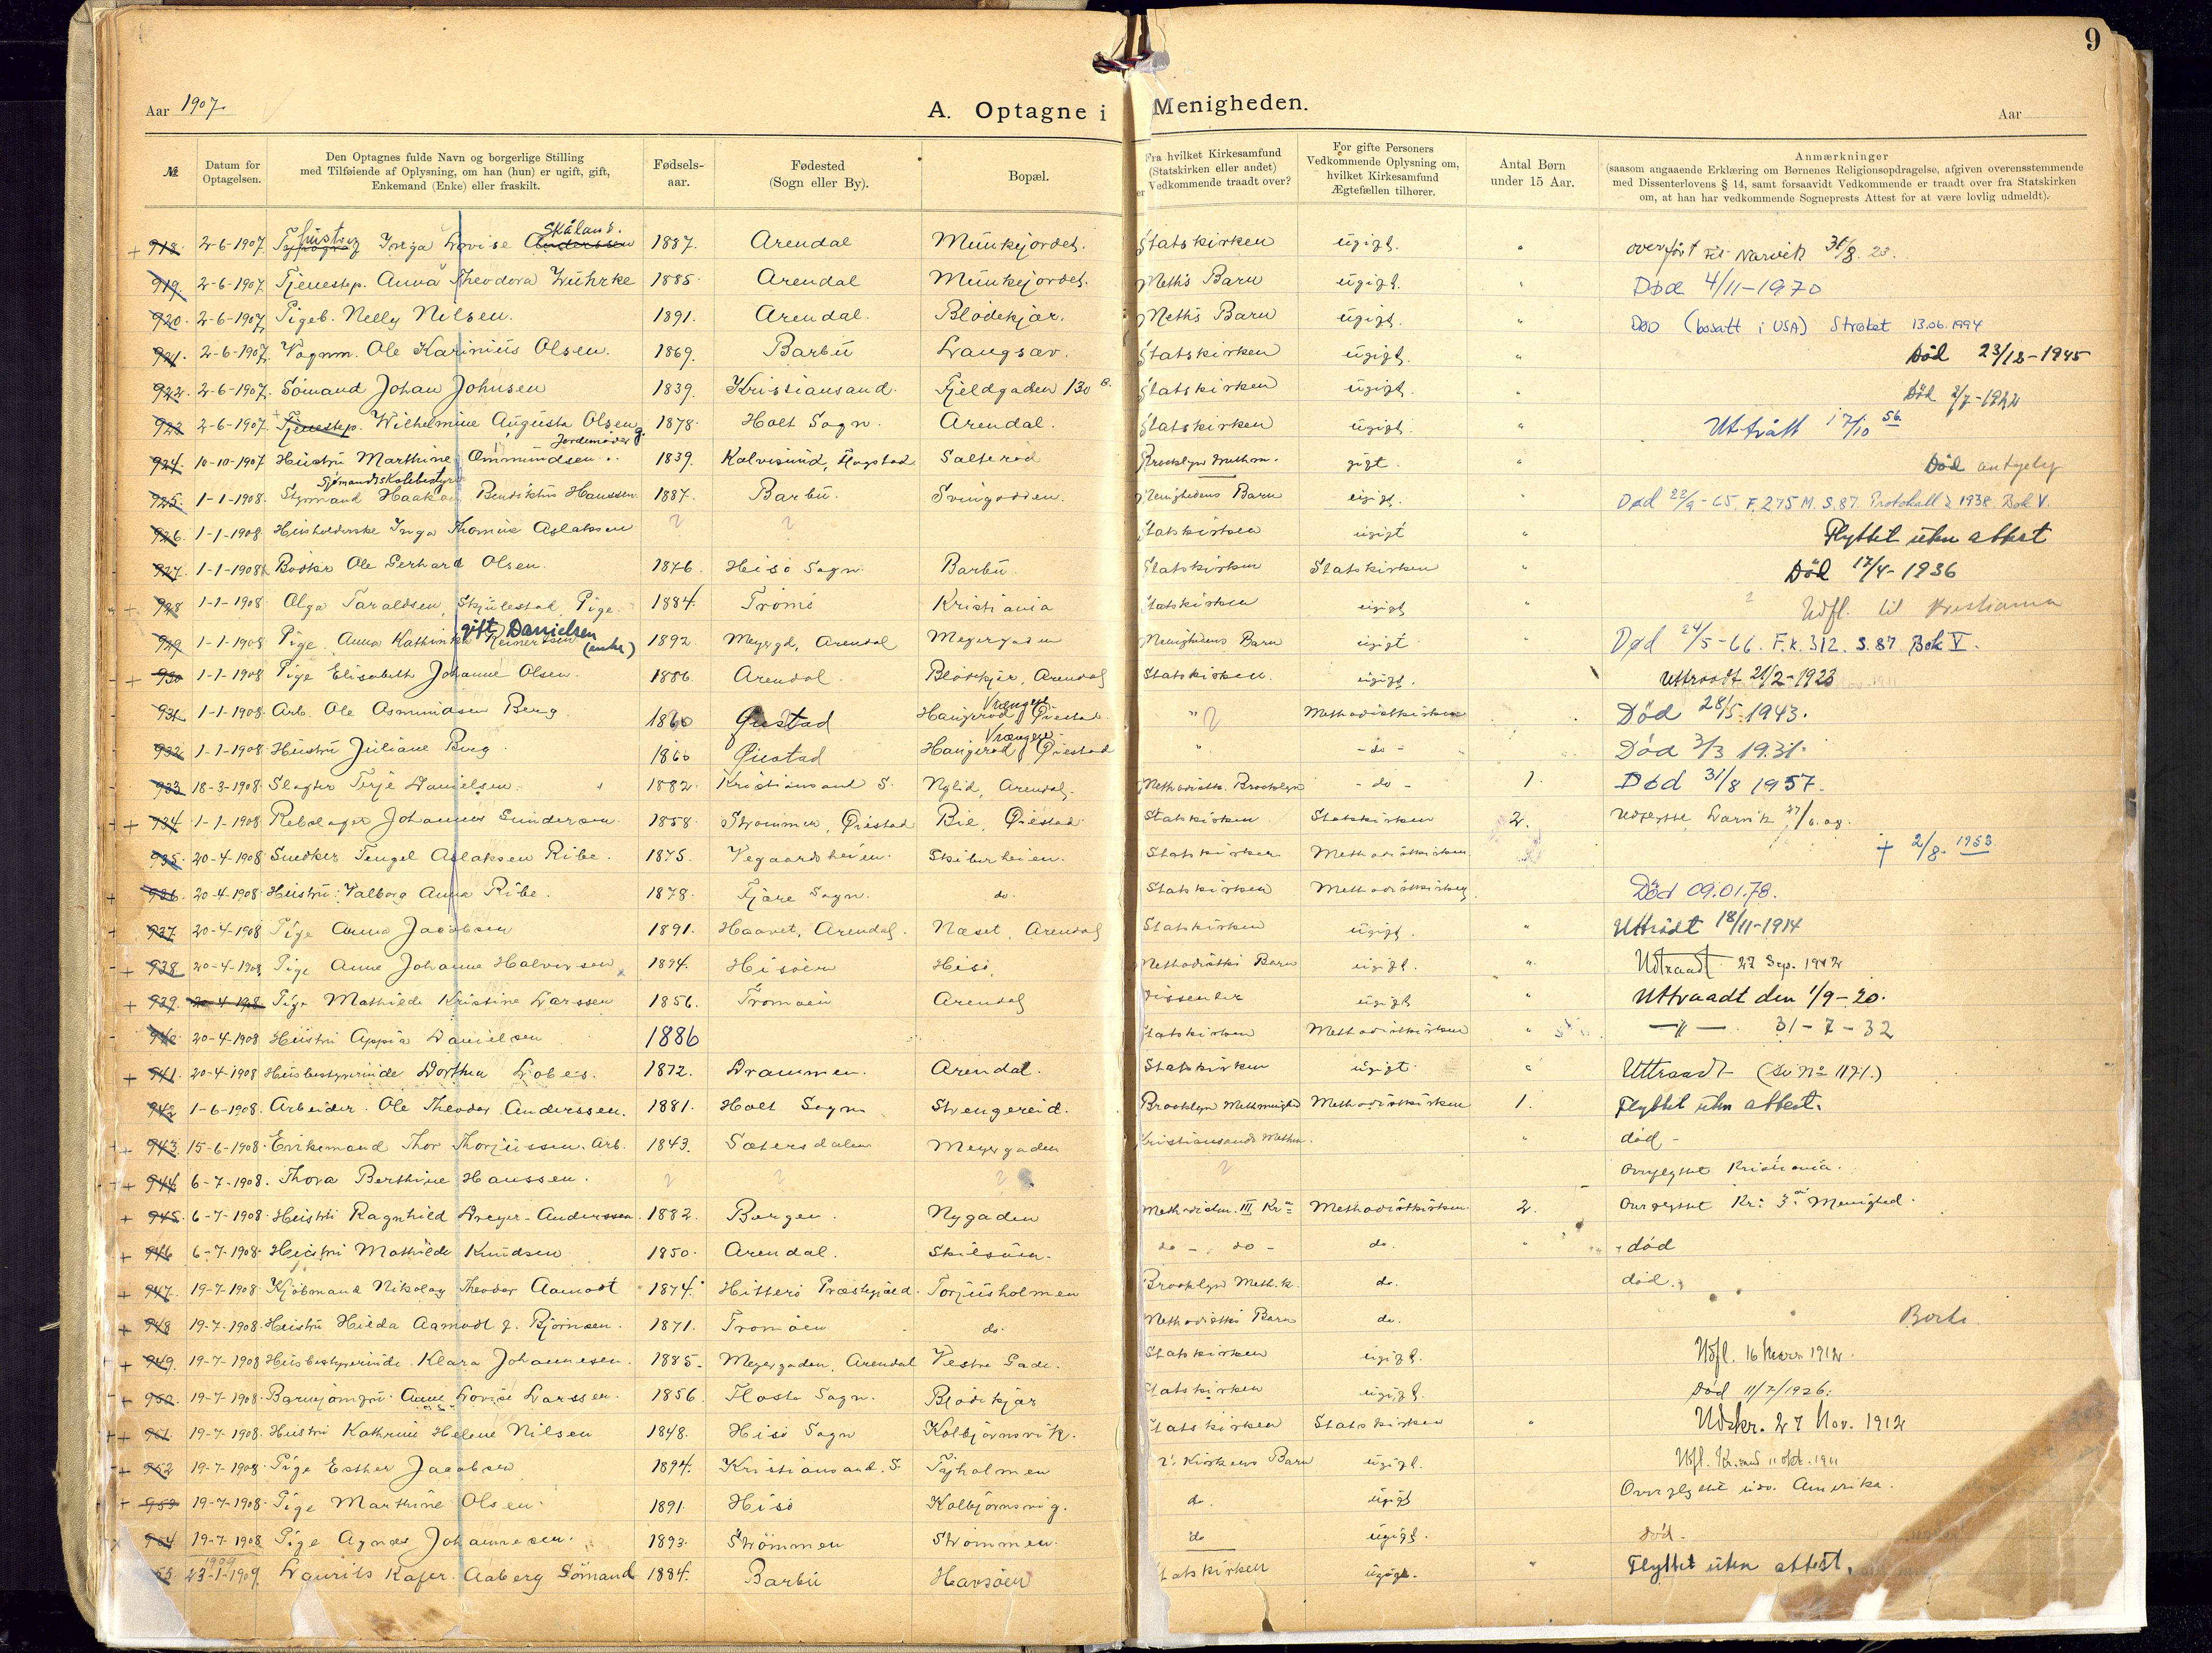 9
Aar 1907.
A. Optagne i Menigheden.
Aar
№
Datum for Optagelsen.
Den Optagnes fulde Navn og borgerlige Stilling med Tilføiende af Oplysning, om han (hun) er ugift, gift, Enkemand (Enke) eller fraskilt.
Fødsels-aar.
Fødested (Sogn eller By).
Bopæl.
Fra hvilket Kirkesamfund (Statskirken eller andet) Vedkommende traadt over?
For gifte Personers Vedkommende Oplysning om, hvilket Kirkesamfund Ægtefællen tilhører.
Antal Børn under 15 Aar.
Anmærkninger (saasom angaaende Erklæring om Børnenes Religionsopdragelse, afgiven overensstemmende med Dissenterlovens § 14, samt forsaavidt Vedkommende er traadt over fra Statskirken om, at han har vedkommende Sogneprests Attest for at være lovlig udmeldt).
+ 918. 2-6-1907. hustru Inga Lovise Anderssen Skåland. 1887. Arendal Munkejordet. Statskirken ugift. " overført til Narvik 31/8. 23.
919. 2-6-1907. Tjenestep. Anna Theodora Wührke 1885. Arendal Munkejordet. Meth's Barn ugift. " Død 4/11-1970
920. 2-6-1907. Pigeb. Nelly Nilsen. 1891. Arendal. Blødekjær. Meth's Barn ugift. " Død (bosatt i USA) Strøket 13.06.1994
921. 2-6-1907. Vognm. Ole Karinius Olsen. 1869. Barbu Langsæv. Statskirken ugift. " Død 23/12-1945
922. 2-6-1907. Sømand Johan Johnsen 1839. Kristiansand. Fjeldgaden 130 B. Statskirken ugift. " Død 2/7-1922
923 2-6-1907. Tjenestep. Wilhelmine Augusta Olsen 1878. Holt Sogn. Arendal. Statskirken ugift. " Uttrått 17/10 56
924. 10-10-1907 Hustru Marthine Ommundsen. Jordemoder 1839. Kalvisund, Saltrød Brooklyn gift. " Død
925. 1-1-1908. Styrmand Haakon Bendiktus Hanssen. 1887. Barbu. Svingodden. Menighedens Barn ugift. " Død 22/9-65. F. 275 M. S. 87. Protokoll 1938. Bok V.
926. 1-1-1908. Husholderske Inga Thomine Aslaksen ? ? Statskirken ugift " Flyttet uten attest
927. 1-1-1908. Bødker Ole Gerhard Olsen. 1876. Hisø Sogn. Barbu. Statskirken Statskirken " Død 17/4-1936
+ 928 1-1-1908. Olga Taraldsen, Skjulestad, Pige. 1884. Tromø Kristiania Statskirken ugift " Udfl. til Kristiania
929. 1-1-1908 Pige. Anna Kathinka Reinertsen gift Danielsen (enke) 1892 Meyergd, Arendal Meyergaden Menighedens Barn ugift " Død 24/5-66. F.k. 312. S. 87. Bok V.
+ 930 1-1-1908 Pige Elisabeth Johanne Olsen. 1886 Arendal. Blødekjær, Arendal Statskirken. ugift. Uttraadt 21/2-1923
931. 1-1-1908. Arb. Ole Osmundsen Berg. 1860 Øiestad Haugerød Øiestad. " ? Methodistkirken Død 28/5. 1943.
932 1-1-1908. Hustru Juliane Berg. 1860 Øiestad Haugerød Øiestad " - do - Død 3/3 1931.
933. 18-3-1908. Slagter Terje Danielsen. 1882. Kristiansand S. Nylid, Arendal. Methodistk. Brooklyn - do - 1. Død 31/8 1957.
+ 934 1-1-1908 Rebslager Johannes Gundersen. 1858. Strømmen, Øiestad Bie, Øiestad. Statskirken Statskirken 2. Larvik
935. 20-4-1908 Snedker Tengel Aslaksen Ribe. 1875. Vegaardsheien. Skiberheien. Statskirken Methodistkirken. † 2/8. 1953
+ 936. 20-4-1908. Hustru: Valborg Anna Ribe. 1878. Fjære Sogn. do. Statskirken Methodistkirken Død 09.01.78.
937 20-4-1908. Pige Anna Jacobsen 1891. Haavet, Arendal. Næset, Arendal Statskirken ugift. " Uttrådt 18/11-1914
+ 938 20-4-1908 Pige Anne Johanne Halvorsen 1894. Hisøien Hisø. Methodistki Barn ugift. " Udtraadt 27 Sep. 1912
+ 939. 20-4-1908 Pige Mathilde Kristine Larssen 1856. Tromøen Arendal Dissenter ugift " Uttraadt den 1/9-20.
940 20-4-1908 Hustru Appia Danielsen 1886 Statskirken Methodistkirken " —"— 31-7-32
+ 941. 20-4-1908 Husbestyrerinde Dorthea 1872. Drammen. Arendal. Statskirken ugift. " Uttraadt (Se № 1171.)
942 1-6-1908. Arbeider. Ole Theodor Anderssen. 1881. Holt Sogn Strengereid. Brooklyn Methmenighed Methodistkirken 1. Flyttet uten attest.
+ 943. 15-6-1908. Enkemand Thor Thorjussen. Arb. 1843. Sætersdalen Meyergaden Kristiansands Methm. " død -
+ 944 6-7-1908. Thora Berthine Hanssen. ? ? ? ? Overflyttet Kristiania.
+ 945. 6-7-1908. Hustru Ragnhild Dreyer-Anderssen. 1882. Bergen. Nygaden Methodistm. III Kr.a Methodistkirken. 2. Overflyttet Kr: 3. Menighed.
+ 946 6-7-1908. Hustru Mathilde Knudsen 1850. Arendal. Skilsøen. do - do - do. " død
+ 947. 19-7-1908. Kjøbmand Nikolay Theodor Aamodt 1874. Hitterø Præstegjæld. Torjusholmen Brooklyn Meth.k. do. død.
+ 948 19-7-1908. Hustru Hilda Aamodt f. Bjørnsen. 1871. Tromøen do. Methodistki Barn do. Borte.
+ 949. 19-7-1908 Husbestyrerinde. Klara Johannesen. 1885. Meyergaden, Arendal Vestre Gade. Statskirken ugift. Udfl. 16 Mars 1912.
950. 19-7-1908. Anne Lovise Larssen. 1856. Flosta Sogn. Blødekjær Statskirken ugift. Død 11/7/1926.
+ 951. 19-7-1908. Hustru Kathrine Helene Nilsen 1848. Hisø Sogn Kolbjørnsvik. Statskirken Statskirken " Udskr. 27 Nov. 1912
+ 952 19-7-1908. Pige Esther Jacobsen 1894. Kristiansand. S Tyholmen Kirkens Barn ugift. Udfl. Kr.sand 11 okt. 1911
+ 953 19-7-1908. Pige Marthine Olsen. 1891. Hisø Kolbjørnsvig. do. ugift Overflyttet Amerika.
954 19-7-1908 Pige Agnes Johannesen. 1893. Strømmen Strømmen. do ugift. Død.
55 23-1-1909. Laurits Aaberg Sømand 1884. Barbu Havsøen Statskirken ugift. " Flyttet uten attest.